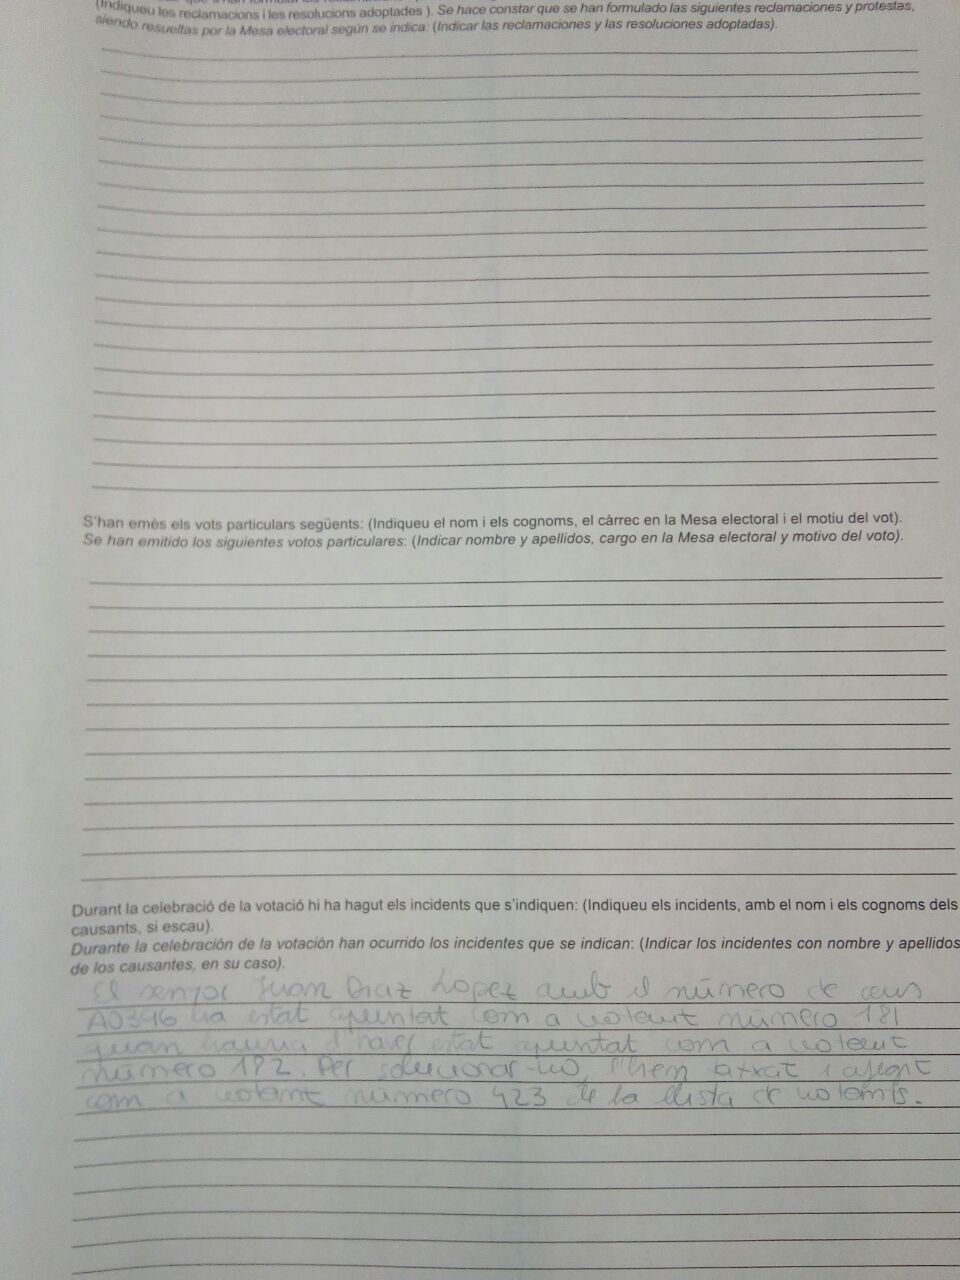 (Indiqueu les reclamacions i les resolucions adoptades ). Se hace constar que se han formulado las siguientes reclamaciones y protestas,
siendo resueltas por la Mesa electoral según se indica: (Indicar las reclamaciones y las resoluciones adoptadas).
S'han emès els vots particulars següents: (Indiqueu el nom i els cognoms, el càrrec en la Mesa electoral i el motiu del vot).
Se han emitido los siguientes votos particulares: (Indicar nombre y apellidos, cargo en la Mesa electoral y motivo del voto).
Durant la celebració de la votació hi ha hagut els incidents que s'indiquen: (Indiqueu els incidents, amb el nom i els cognoms dels
causants, si escau).
Durante la celebración de la votación han ocurrido los incidentes que se indican: (Indicar los incidentes con nombre y apellidos
de los causantes, en su caso).
El senyor Juan Diaz Lopez amb el número de cens
A0396 ha estat apuntat com a votant número 181
quan hauria d'haver estat apuntat com a votant
número 182. Per solucionar-ho, l'hem tatxat i afegit
com a votant número 423 de la llista de votants.